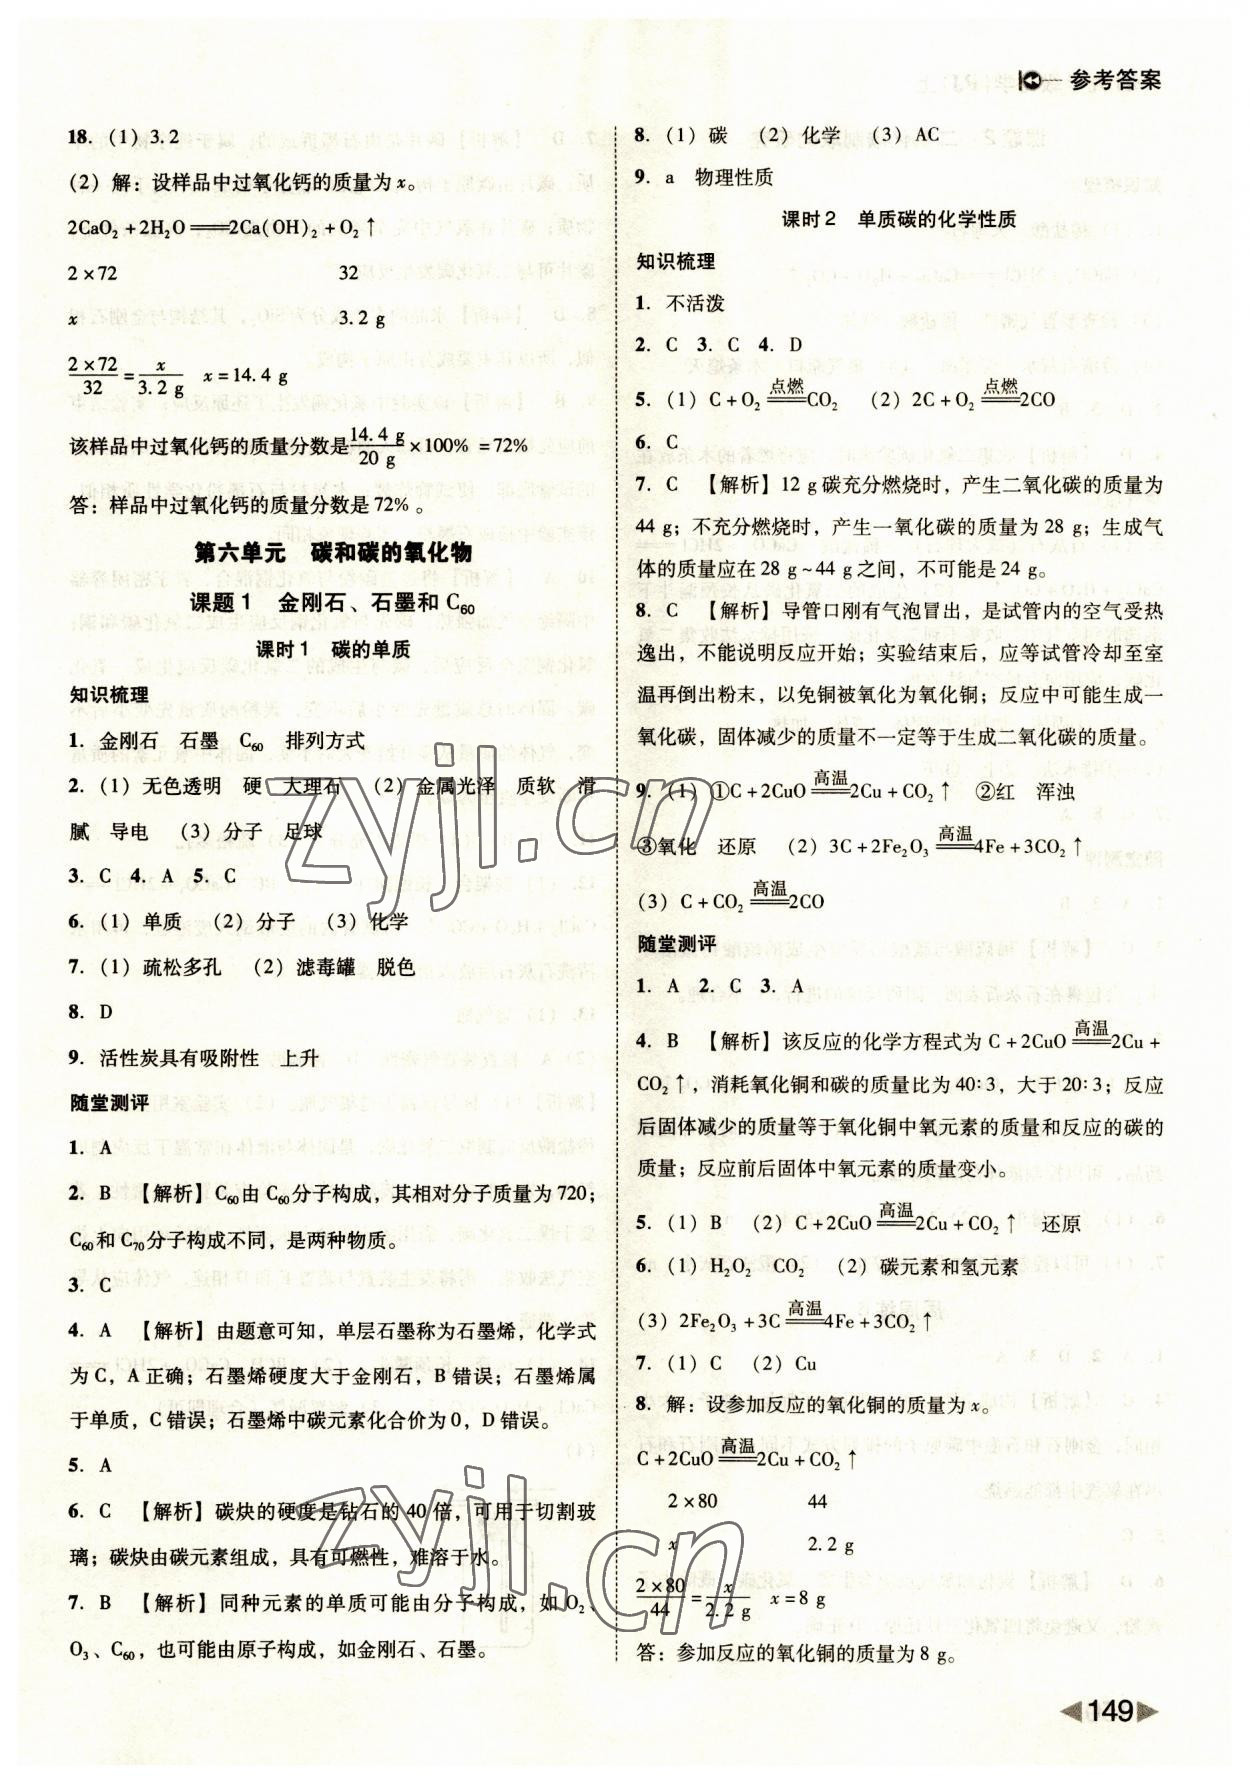 参考答案
18. (1) 3.2
(2) 解：设样品中过氧化钙的质量为x。
2CaO₂+2H₂O══2Ca(OH)₂+O₂↑
2×72 32
x 3.2 g
2×72/32=x/3.2 g x=14.4 g
该样品中过氧化钙的质量分数是14.4 g/20 g×100%=72%
答：样品中过氧化钙的质量分数是72%。
第六单元 碳和碳的氧化物
课题1 金刚石、石墨和C₆₀
课时1 碳的单质
知识梳理
1. 金刚石 石墨 C₆₀ 排列方式
2. (1) 无色透明 硬 大理石 (2) 金属光泽 质软 滑
腻 导电 (3) 分子 足球
3. C 4. A 5. C
6. (1) 单质 (2) 分子 (3) 化学
7. (1) 疏松多孔 (2) 滤毒罐 脱色
8. D
9. 活性炭具有吸附性 上升
随堂测评
1. A
2. B 【解析】C₆₀由C₆₀分子构成，其相对分子质量为720；
C₆₀和C₇₀分子构成不同，是两种物质。
3. C
4. A 【解析】由题意可知，单层石墨称为石墨烯，化学式
为C，A正确；石墨烯硬度大于金刚石，B错误；石墨烯属
于单质，C错误；石墨烯中碳元素化合价为0，D错误。
5. A
6. C 【解析】碳炔的硬度是钻石的40倍，可用于切割玻
璃；碳炔由碳元素组成，具有可燃性，难溶于水。
7. B 【解析】同种元素的单质可能由分子构成，如O₂、
O₃、C₆₀，也可能由原子构成，如金刚石、石墨。
8. (1) 碳 (2) 化学 (3) AC
9. a 物理性质
课时2 单质碳的化学性质
知识梳理
1. 不活泼
2. C 3. C 4. D
5. (1) C+O₂══点燃══CO₂ (2) 2C+O₂══点燃══2CO
6. C
7. C 【解析】12 g碳充分燃烧时，产生二氧化碳的质量为
44 g；不充分燃烧时，产生一氧化碳的质量为28 g；生成气
体的质量应在28 g~44 g之间，不可能是24 g。
8. C 【解析】导管口刚有气泡冒出，是试管内的空气受热
逸出，不能说明反应开始；实验结束后，应等试管冷却至室
温再倒出粉末，以免铜被氧化为氧化铜；反应中可能生成一
氧化碳，固体减少的质量不一定等于生成二氧化碳的质量。
9. (1) ①C+2CuO══高温══2Cu+CO₂↑ ②红 浑浊
③氧化 还原 (2) 3C+2Fe₂O₃══高温══4Fe+3CO₂↑
(3) C+CO₂══高温══2CO
随堂测评
1. A 2. C 3. A
4. B 【解析】该反应的化学方程式为C+2CuO══高温══2Cu+
CO₂↑，消耗氧化铜和碳的质量比为40∶3，大于20∶3；反应
后固体减少的质量等于氧化铜中氧元素的质量和反应的碳的
质量；反应前后固体中氧元素的质量变小。
5. (1) B (2) C+2CuO══高温══2Cu+CO₂↑ 还原
6. (1) H₂O₂ CO₂ (2) 碳元素和氢元素
(3) 2Fe₂O₃+3C══高温══4Fe+3CO₂↑
7. (1) C (2) Cu
8. 解：设参加反应的氧化铜的质量为x。
C+2CuO══高温══2Cu+CO₂↑
2×80 44
x 2.2 g
2×80/44=x/2.2 g x=8 g
答：参加反应的氧化铜的质量为8 g。
149
zyjl.cn
zyjl.cn